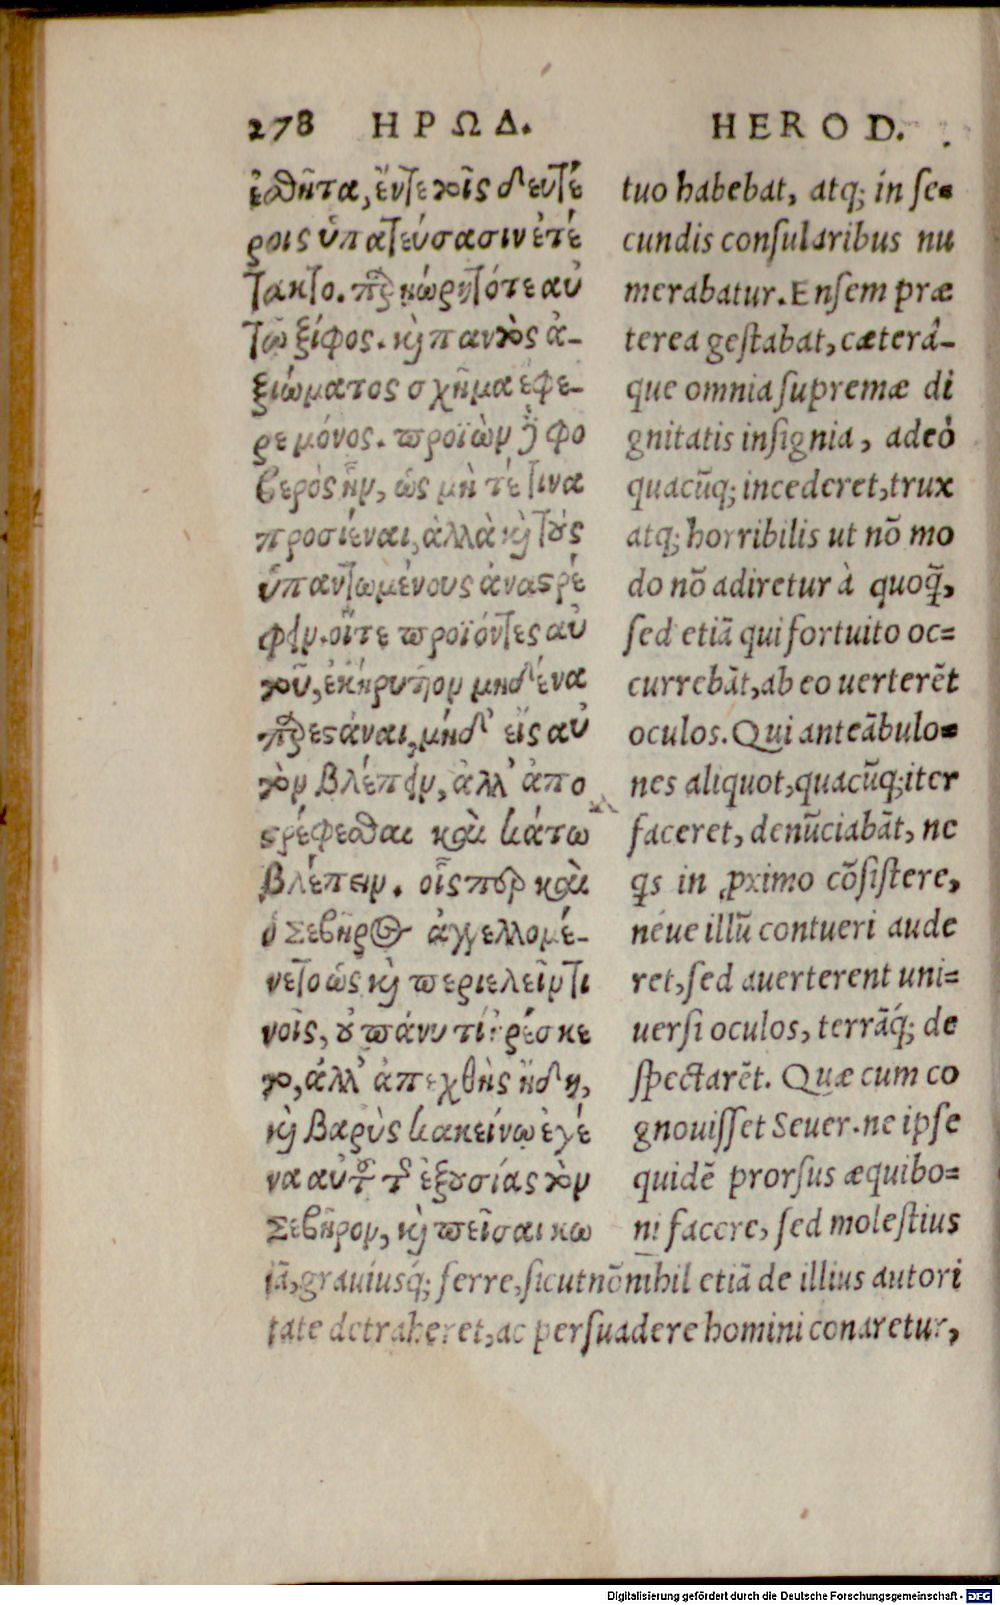 278 ΗΡΩΔ.
ἐσθῆτα, ἔντε τοῖς δευτέ
ροις ὑπατεύσασιν ἐτέ
τακτο. παρῃώρητό τε αὐ
τῷ ξίφος. κὶ παντὸς ἀ-
ξιώματος σχῆμα ἔφε-
ρε μόνος. προϊὼν δὲ φο
βερὸς ἦν, ὡς μὴ τέ τινα
προσιέναι, ἀλλὰ κὶ τοὺς
ὑπαντωμένους ἀναστρέ
φειν. οἵτε προϊόντες αὐ
τοῦ, ἐκήρυττον μηδένα
παρεστάναι, μήδ' εἰς αὐ
τὸν βλέπειν, ἀλλ' ἀπο
στρέφεσθαι καὶ κάτω
βλέπειν. οἷσπερ καὶ
ὁ Σεβῆρος ἀγγελλομέ-
νοις, οὐ πάνυ τι ἠρέσκε
το, ἀλλ' ἀπεχθὴς ἤδη,
κὶ βαρὺς κακείνω ἐγέ
νετο ὡς κὶ περιελεῖν τι
να αὐτοῦ τῆς ἐξουσίας τὸν
Σεβῆρον, κὶ πεῖσαι κω
HEROD.
tuo habebat, atq; in se-
cundis consularibus nu
merabatur. Ensem præ
terea gestabat, cæterâ-
que omnia supremæ di
gnitatis insignia, adeò
quacũq; incederet, trux
atq; horribilis ut nõ mo
do nõ adiretur à quoq̃,
sed etiã qui fortuito oc-
currebãt, ab eo uerterẽt
oculos. Qui anteãbulo-
nes aliquot, quacũq; iter
faceret, denũciabãt, ne
q̃s in ꝓximo cõsistere,
néue illũ contueri aude
ret, sed auerterent uni-
uersi oculos, terrãq́; de
spectarẽt. Quæ cum co
gnouisset Seuer. ne ipse
quidẽ prorsus æquibo-
ni facere, sed molestius
iã, grauiusq́; ferre, sicut nõ nihil etiã de illius autori
tate detraheret, ac persuadere homini conaretur,
Digitalisierung gefördert durch die Deutsche Forschungsgemeinschaft - DFG